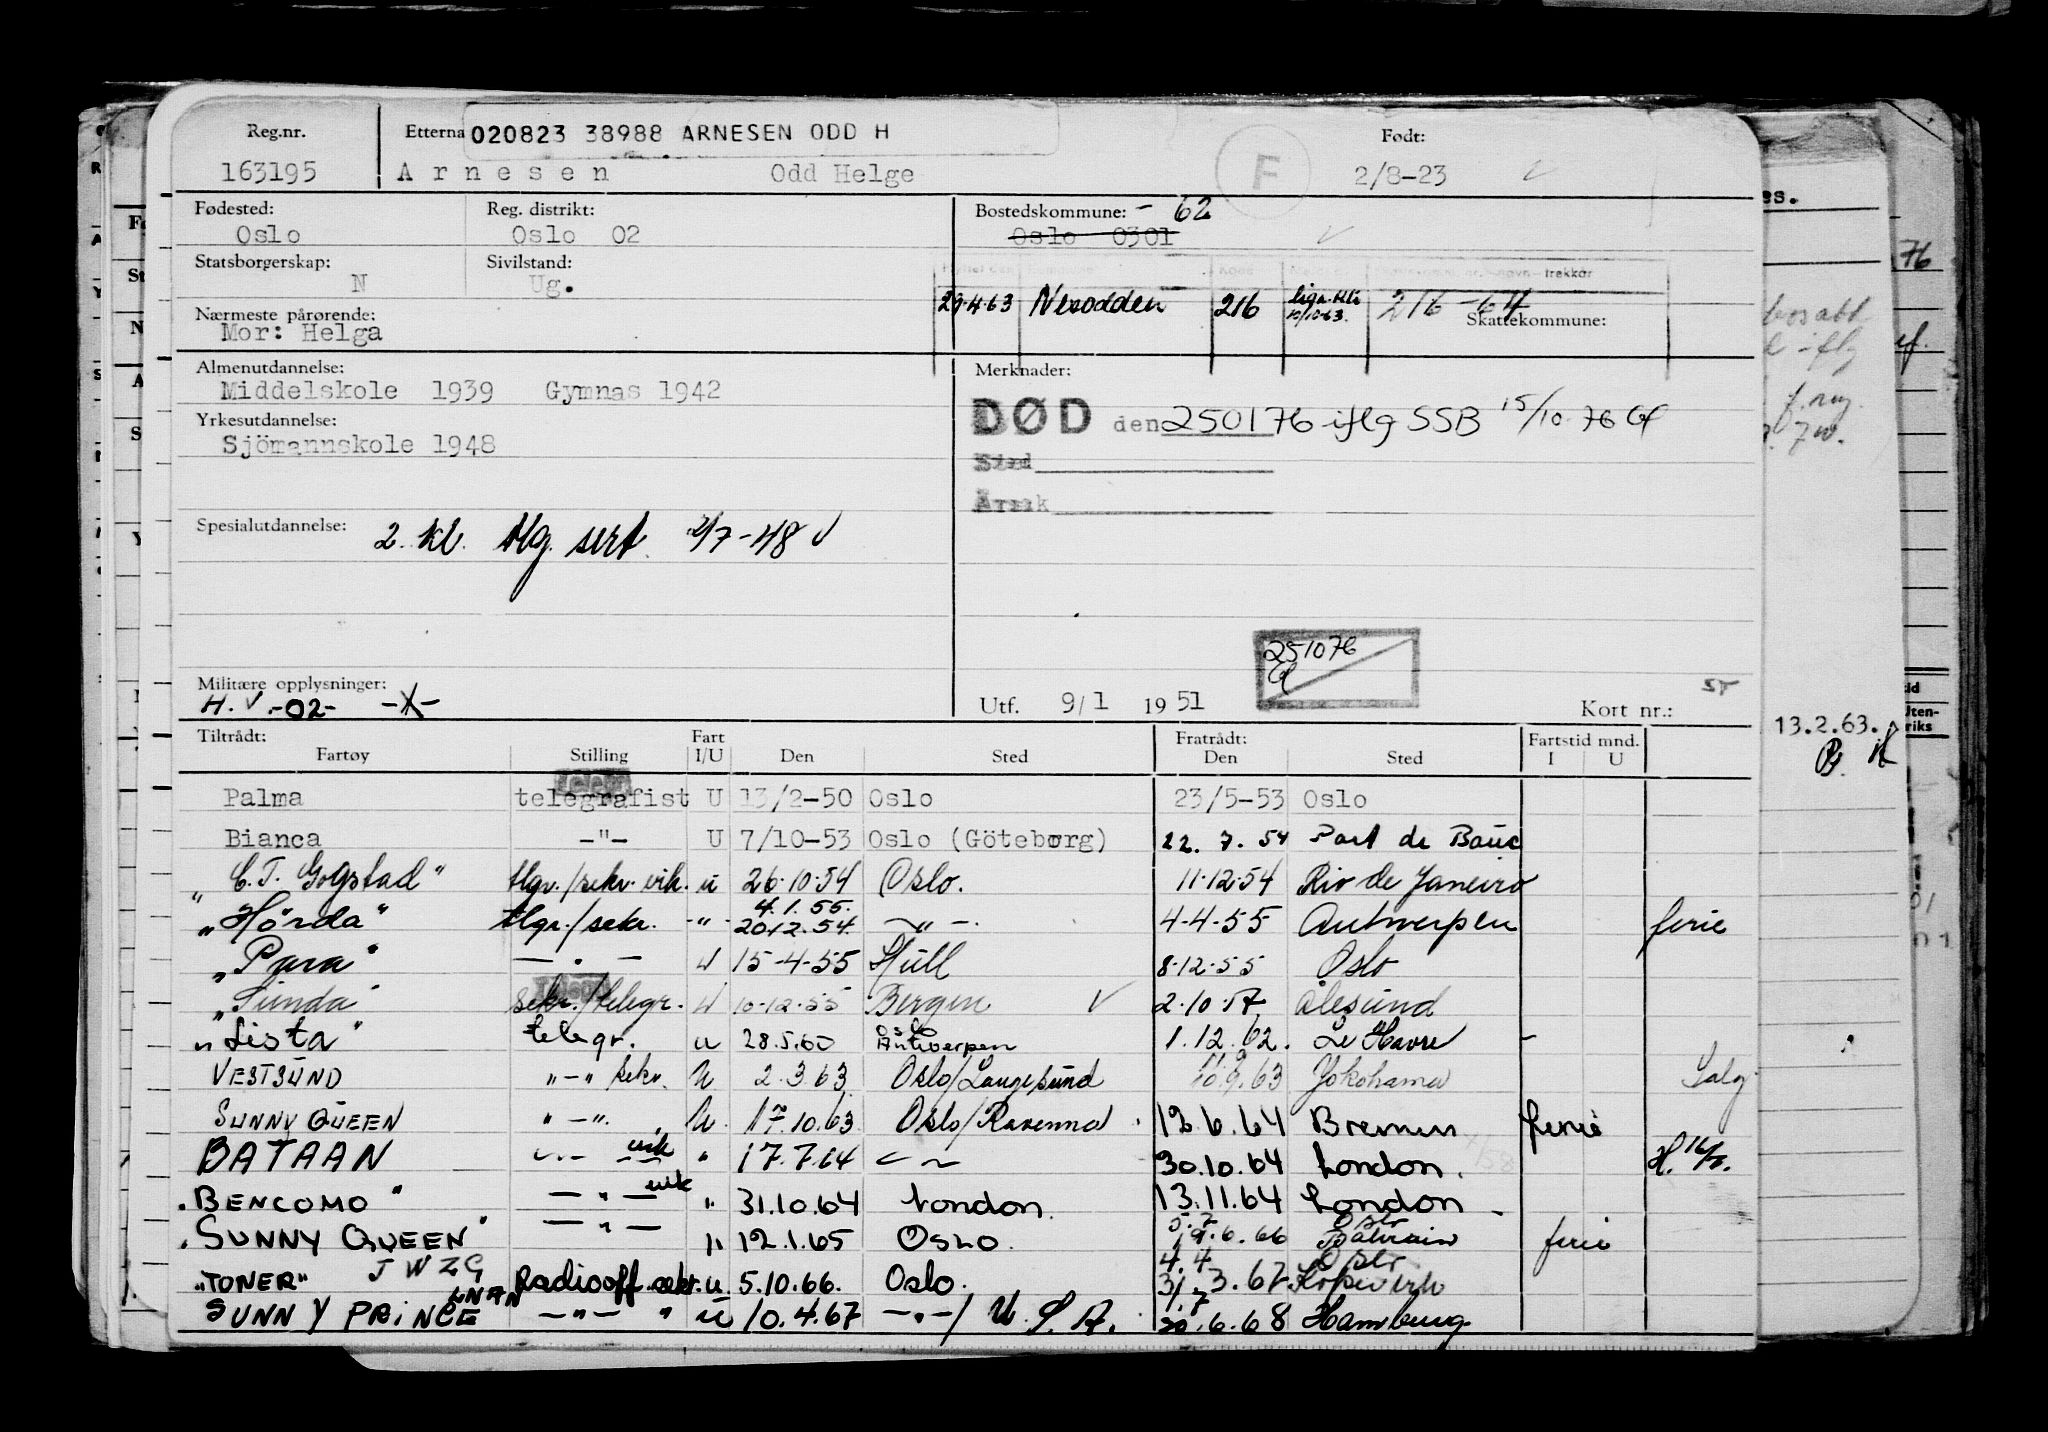 Reg.nr. Etterna 020823 38988 ARNESEN ODD H Født:
163195 Arnesen Odd Helge F 2/8-23
Fødested: Reg. distrikt: Bostedskommune: - 62
Oslo Oslo 02 Oslo 0301
Statsborgerskap: Sivilstand: trekkar
N Ug.
29.4.63 Nesodden 216 10/10-63. 216-64
Nærmeste pårørende: Skattekommune:
Mor: Helga
Almenutdannelse: Merknader:
Middelskole 1939 Gymnas 1942
DØD den 250176 iflg SSB 15/10 76
Yrkesutdannelse:
Sjömannskole 1948
Spesialutdannelse: 2. kl. tlg. sert. 2/7-48 v
251076
Militære opplysninger:
H.V.-02- -X-
Utf. 9/1 1951 Kort nr.: ST
Tiltrådt: Fart Fratrådt: Fartstid mnd.
Fartøy Stilling I/U Den Sted Den Sted I U
13.2.63.
Palma telegrafist U 13/2-50 Oslo 23/5-53 Oslo
Bianca -"- U 7/10-53 Oslo (Göteborg) 22. 7. 54 Port de Bouc
"C.T. Gogstad" tlgr./sekr. vik. u 26.10.54 Oslo. 11.12.54 Rio de Janeiro
4.1.55.
"Hörda" tlgr./sekr. -"- 20.12.54 -"-. 4-4-55 Antwerpen ferie
"Para" -"- U 15-4-55 Hull 8.12.55 Oslo
"Sunda" sekr./telegr. U 10-12-55 Bergen V 2.10.57 Ålesund
Oslo
"Lista" telegr. u 28.5.60 Antwerpen 1.12.62. Le Havre -
VESTSUND "-" sekr. U 2.3.63 Oslo/Langesund 10.9.63 Yokohama Salg
SUNNY QUEEN "-". U. 17.10.63 Oslo/Ravenna. 12.6.64 Bremen ferie
BATAAN -"- vik " 17.7.64 30.10.64 London. H.
"BENCOMO" -"- vik " 31.10.64 London. 13.11.64 London
5.7 Oslo
"SUNNY QUEEN" -"- " 12.1.65 OSLO. 19.6.66 Bahrain ferie
JWZG 4.4 Oslo
"TONER" Radiooff sekr. u 5.10.66. Oslo. 31.3.67 Kopervik
LNAN
SUNNY PRINCE -"- " u 10.4.67 -"-/U.S.A. 20.6.68 Hamburg